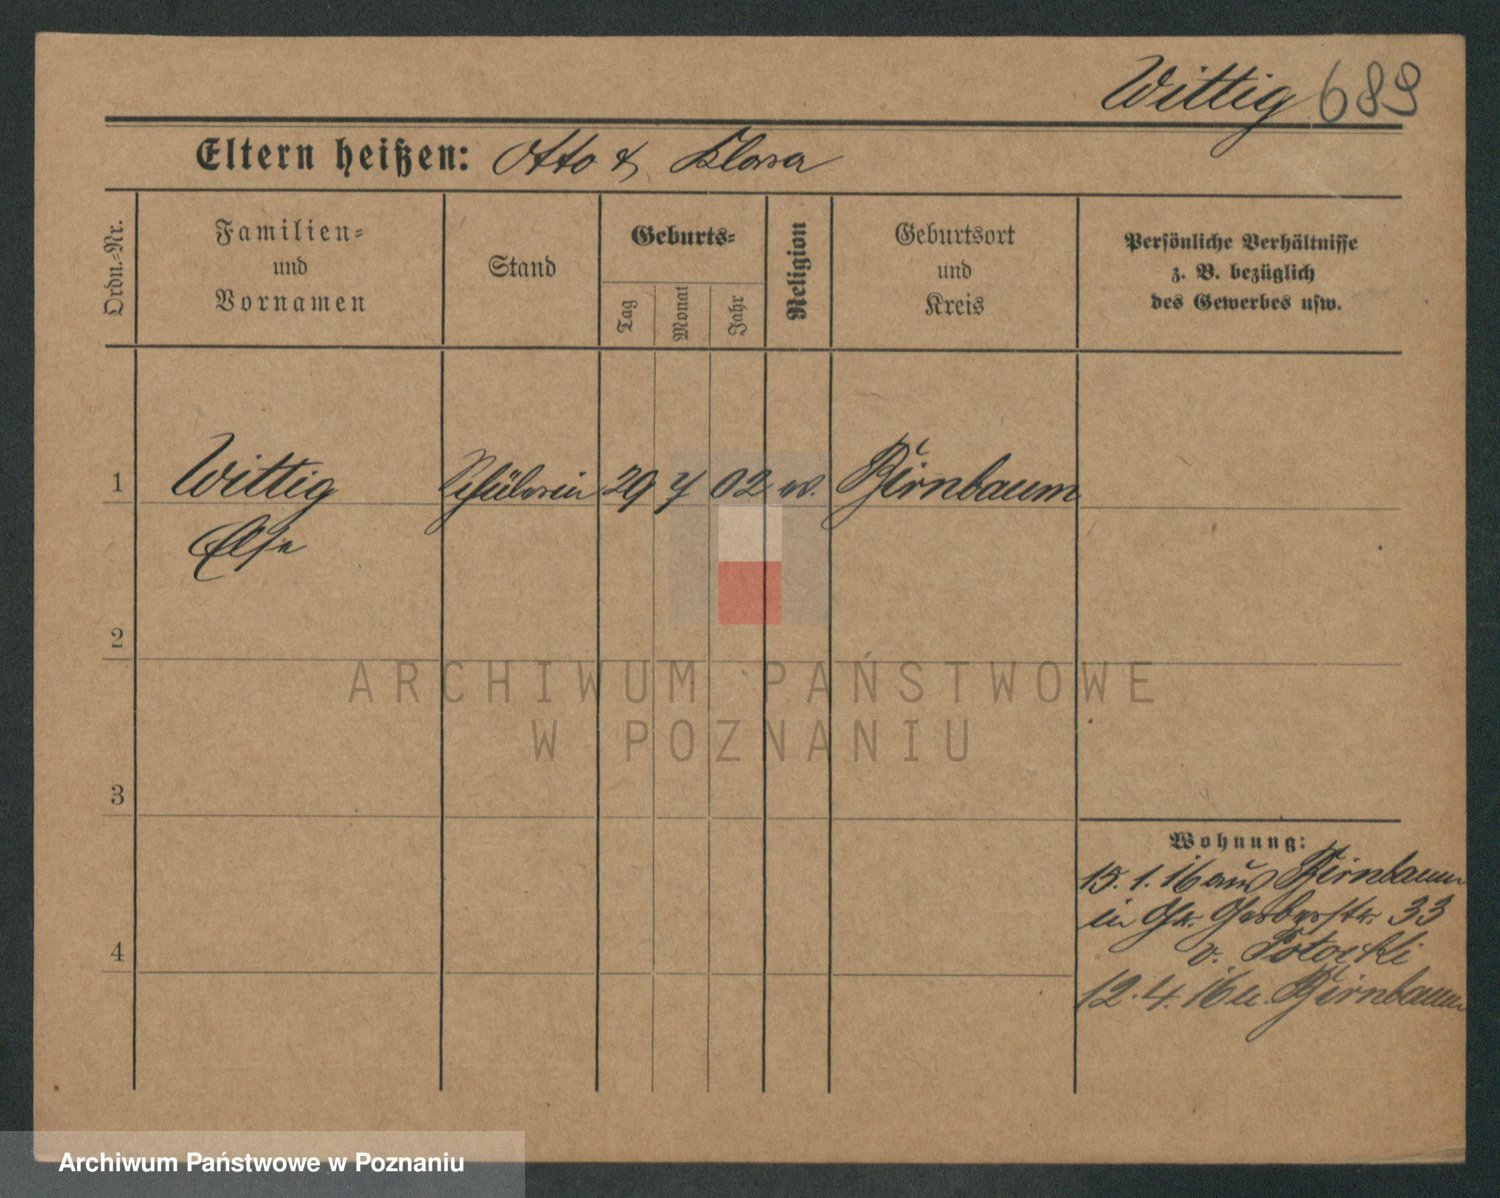 Wittig 689
Eltern heißen: Otto & Klara
Ordn.-Nr.
Familien-
und
Vornamen
Stand
Geburts-
Tag
Monat
Jahr
Religion
Geburtsort
und
Kreis
Persönliche Verhältnisse
z. B. bezüglich
des Gewerbes usw.
1 Wittig Schülerin 29 7 02 ev. Birnbaum
Else
2
ARCHIWUM PAŃSTWOWE
W POZNANIU
3
Wohnung:
15.1.16 aus Birnbaum
in Gr. Gerberstr. 33
v. Potocki
4
12.4.16 n. Birnbaum
Archiwum Państwowe w Poznaniu